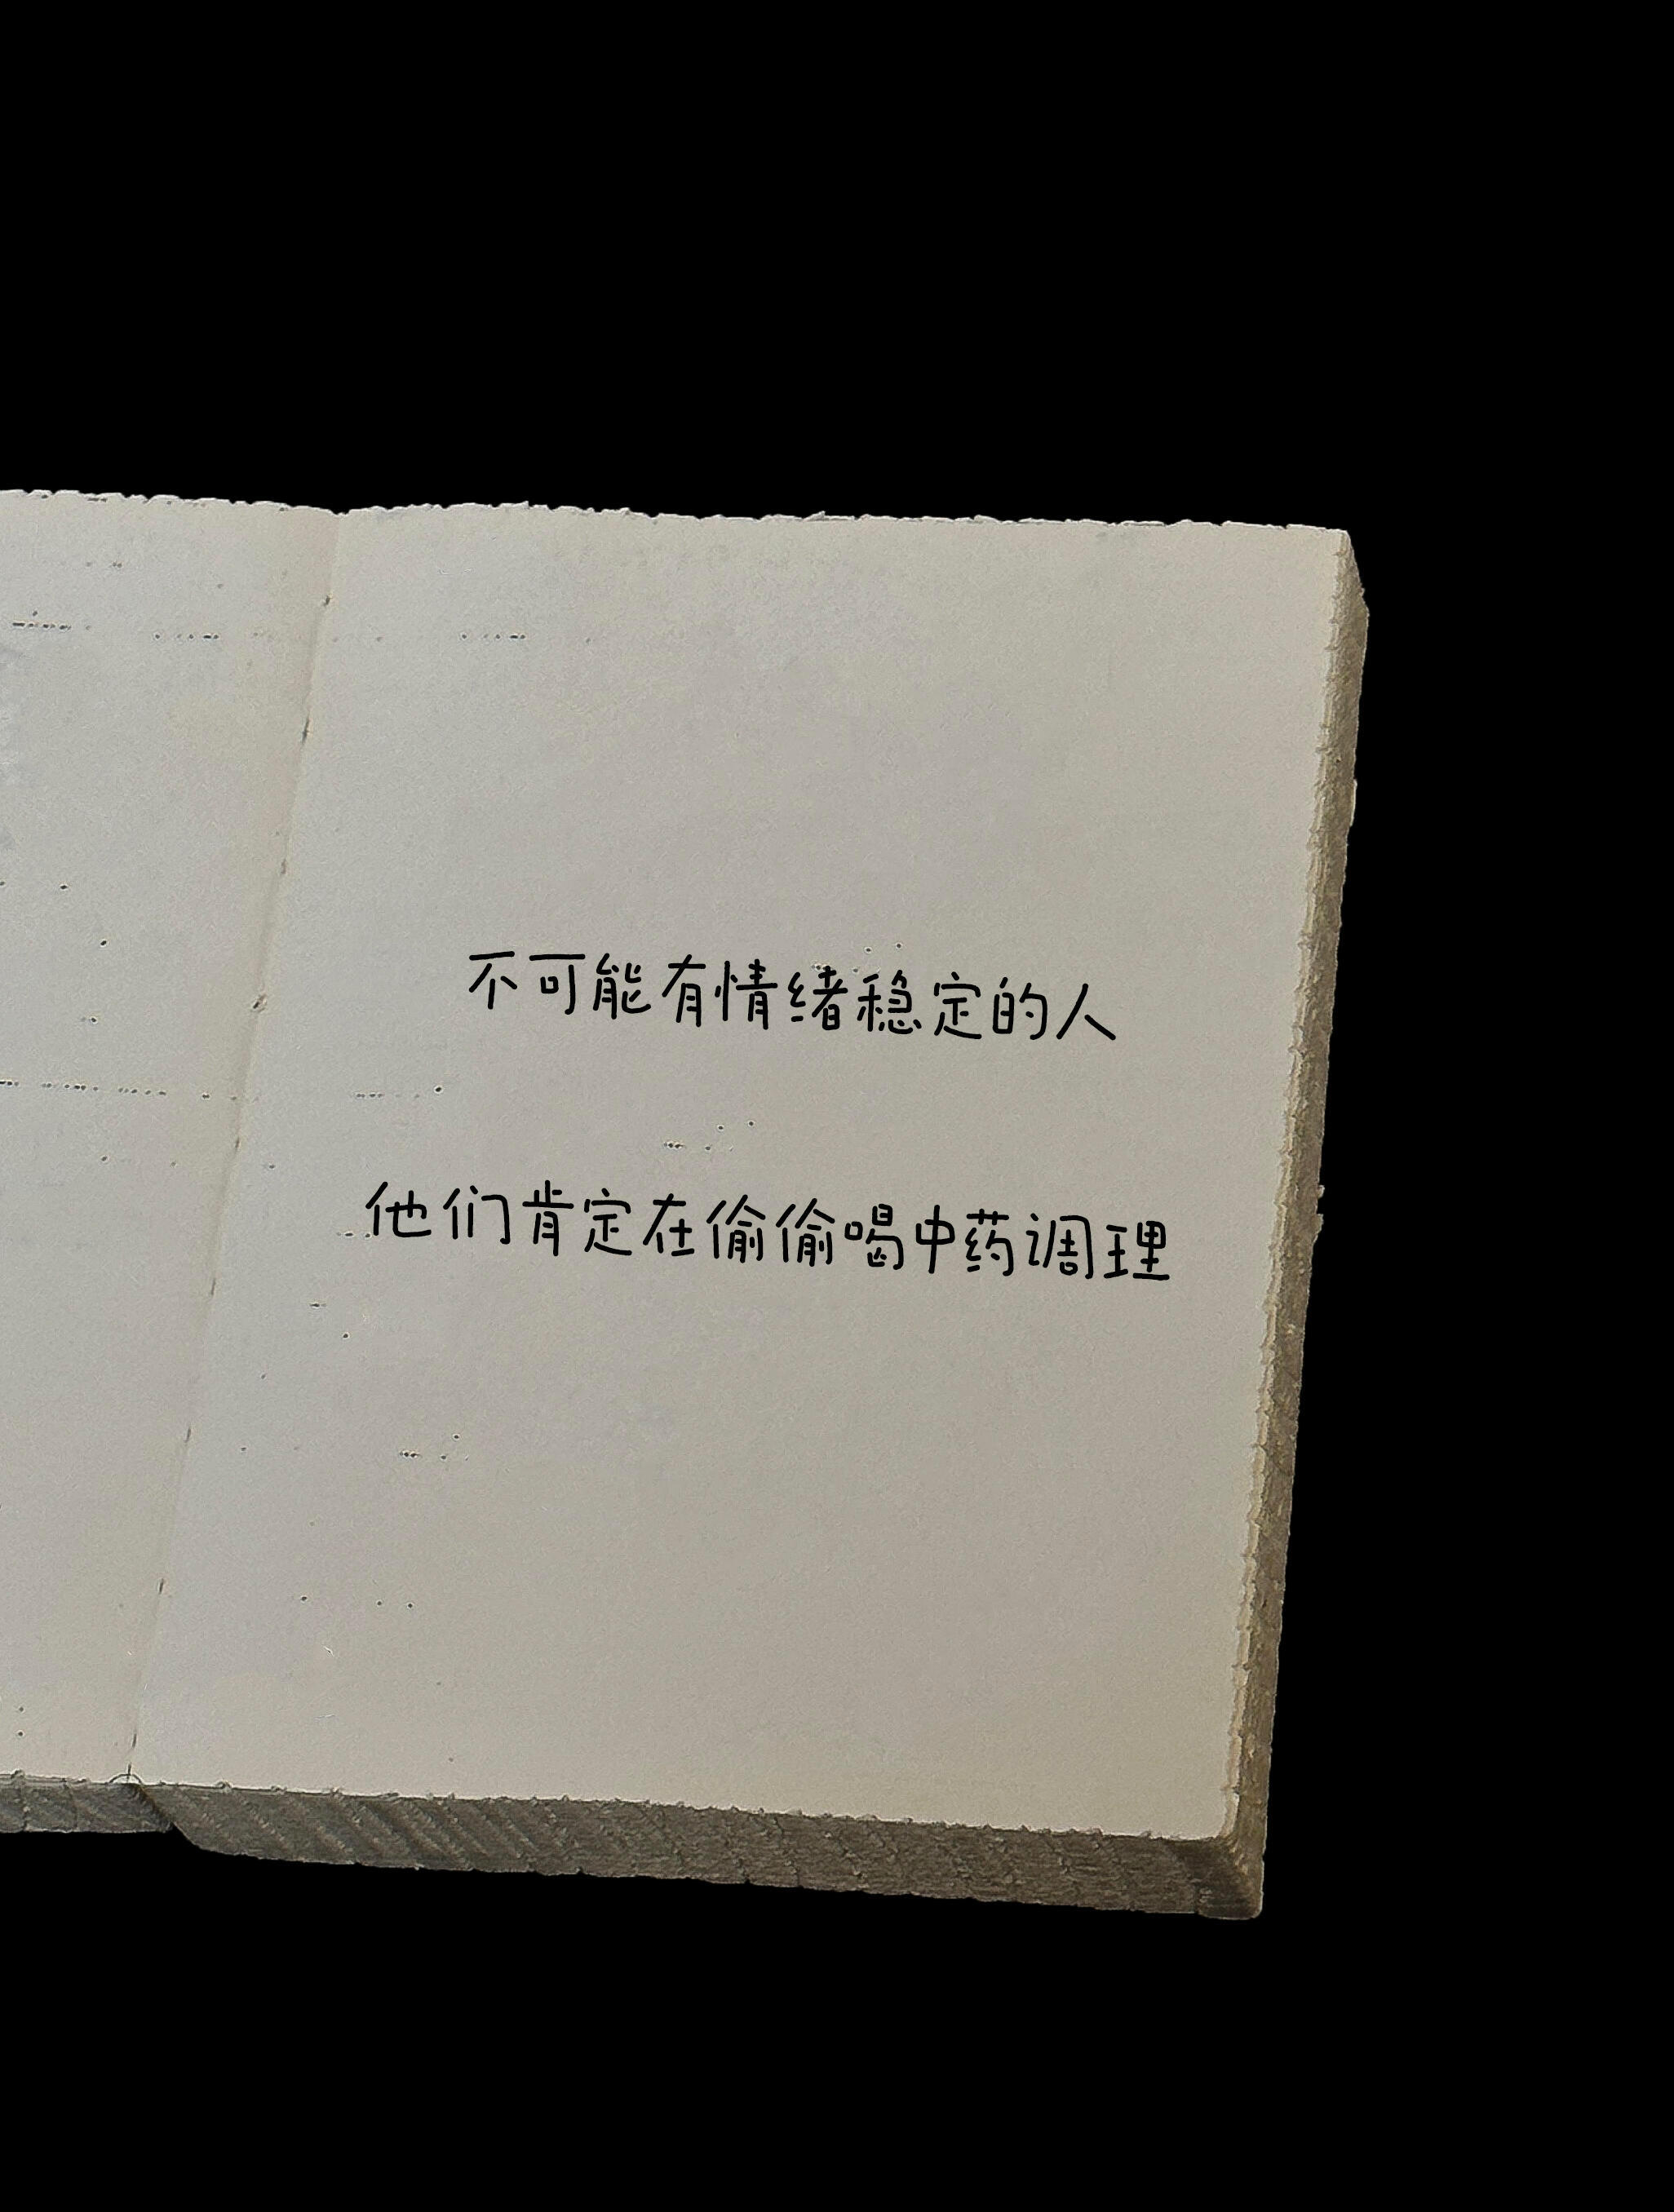 不可能有情绪稳定的人
他们肯定在偷偷喝中药调理